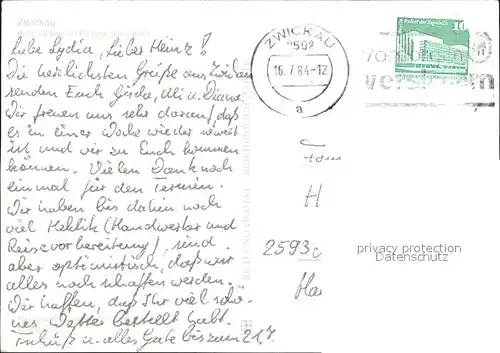 Zwickau
Liebe Lydia, Lieber Heinz!
Die herzlichsten Grüße aus Zwickau
senden Euch Gisela, Uli u. Diana.
Wir freuen uns sehr darauf, daß
es in einer Woche wieder soweit
ist und wir zu Euch kommen
können. Vielen Dank noch
einmal für den Termin.
Wir haben bis dahin noch
viel Hektik (Handwerker und
Reisevorbereitung), sind
aber optimistisch, daß wir
alles noch schaffen werden.
Wir hoffen, daß Ihr viel schö-
nes Wetter bestellt habt.
Tschüß u. alles Gute bis zum 21.7.
BILD UND HEIMAT REICHENBACH
ZWICKAU
9592
16.7.84-12
a
10
Palast der Republik
H
2593
Ha
privacy protection
Datenschutz